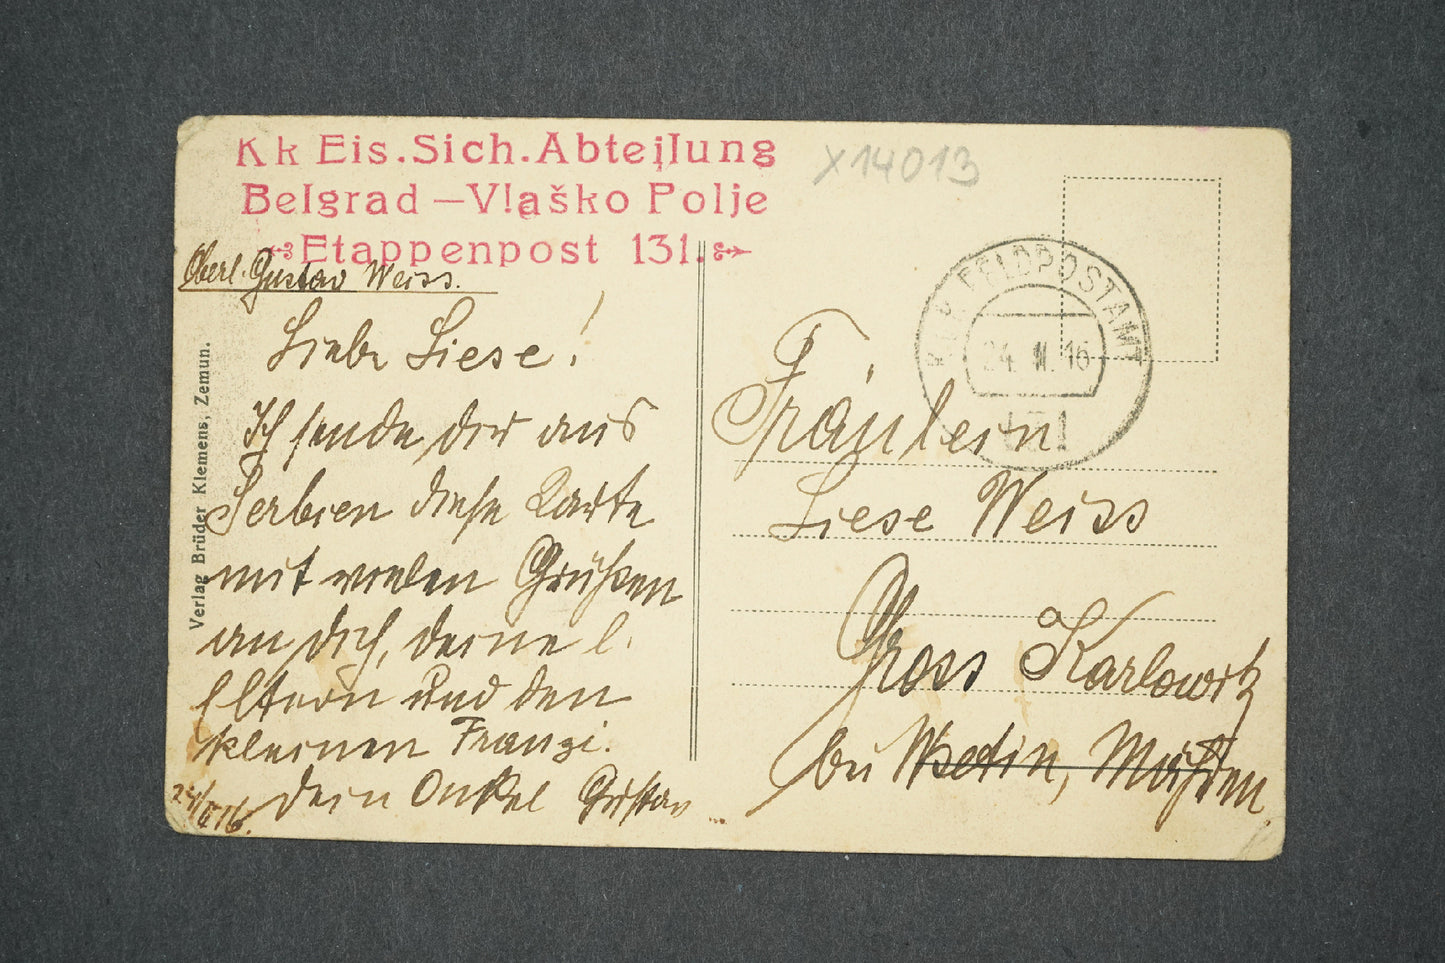 Kk Eis.Sich.Abteilung
Belgrad —Vlaško Polje
Etappenpost 131.
X14013
Oberl. Gustav Weiss.
Liebe Liese!
Ich sende dir aus
Serbien diese Karte
mit vielen Grüßen
an dich, deine l.
Eltern und den
kleinen Franzi.
dein Onkel Gustav
24/II 16.
Verlag Brüder Klemens, Zemun.
K.u.K. FELDPOSTAMT
24. II. 16
131
Fräulein
Liese Weiss
Gross Karlowitz
bei Wsetin, Mähren